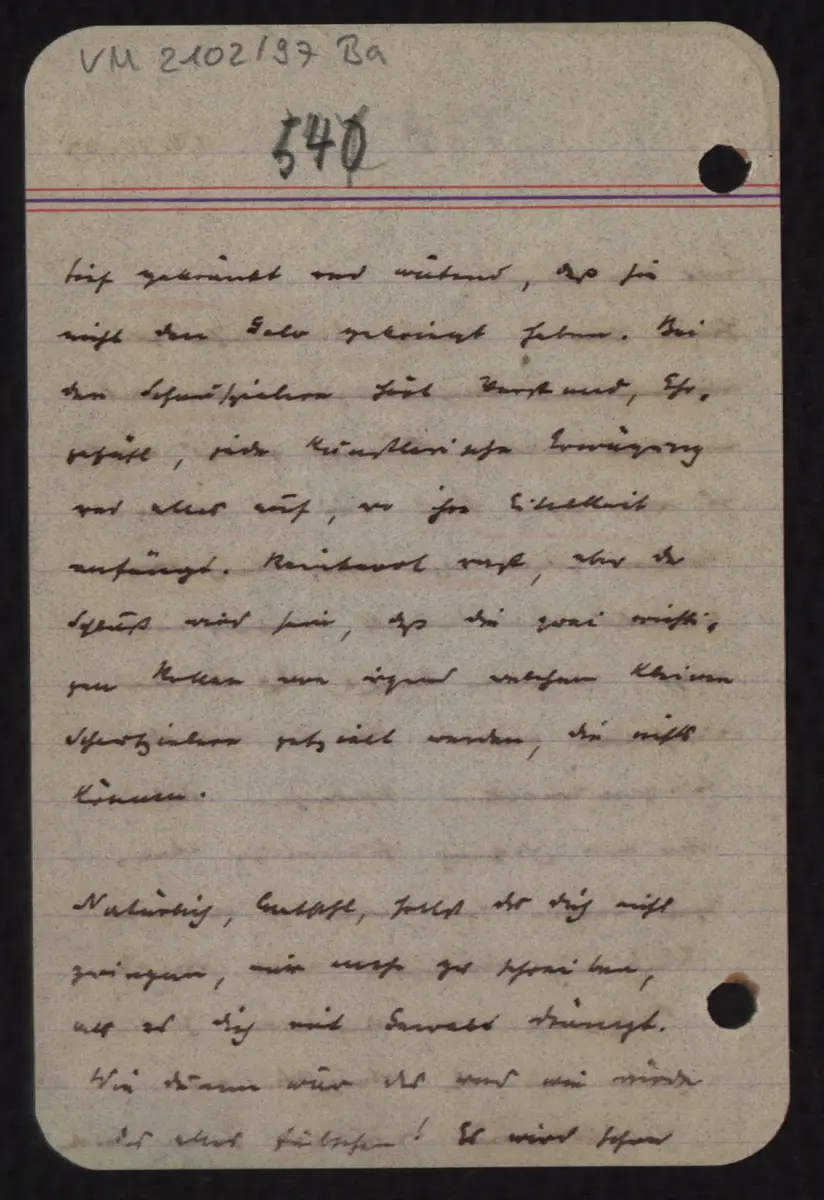 VM 2102/97 Ba
540
tief gekränkt und wütend, daß sie
nicht den gekriegt haben. Bei
den Schauspielern hört Verstand, Ehr-
gefühl, jede künstlerische Erwägung
und alles auf, wo ihre Eitelkeit
anfängt. rast, aber der
Schluß wird sein, daß die zwei wichti-
gen Rollen von irgend welchen kleinen
Schauspielern gespielt werden, die nichts
können.
Natürlich, sollst du dich nicht
zwingen, mir mehr zu schreiben,
als es dich mit Gewalt drängt.
Wie dumm wär das und wie würde
das alles fälschen! Es wird schon